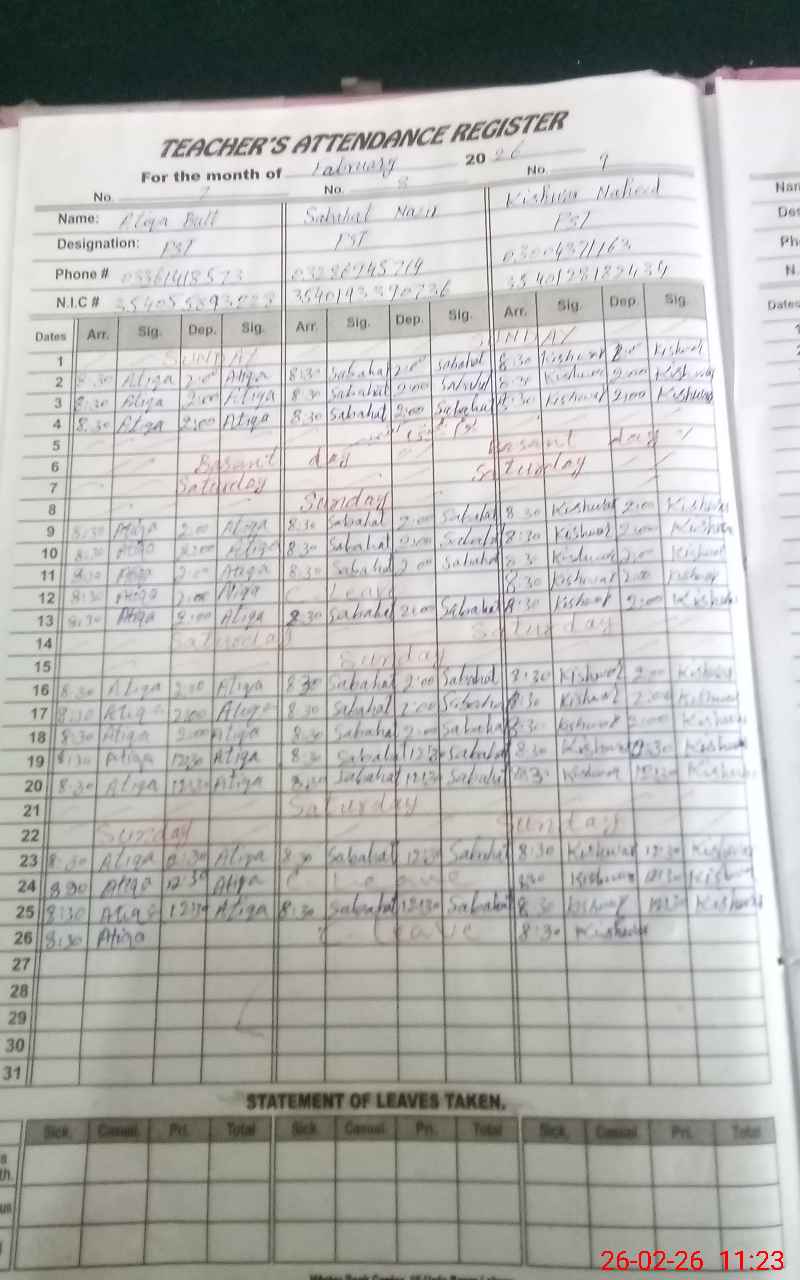 TEACHER'S ATTENDANCE REGISTER
For the month of February 2026
No. 7 No. 8 No. 9
Name: Atiqa Butt Sabahat Nazir Kishwar Naheed
Designation: PST PST PST
Phone # 03361418523 03004371163
N.I.C #
Dates Arr. Sig. Dep. Sig. Arr. Sig. Dep. Sig. Arr. Sig. Dep. Sig.
1 SUNDAY SUNDAY
2 8:30 Atiqa 2:00 Atiqa 8:30 Sabahat 2:00 Sabahat 8:30 Kishwar 2:00 Kishwar
3 8:30 Atiqa 2:00 Atiqa 8:30 Sabahat 2:00 Sabahat 8:30 Kishwar 2:00 Kishwar
4 8:30 Atiqa 2:00 Atiqa 8:30 Sabahat 2:00 Sabahat 8:30 Kishwar 2:00 Kishwar
5
6 Basant day Basant day
7 Saturday Saturday
8 Sunday
9 8:30 Atiqa 2:00 Atiqa 8:30 Sabahat 2:00 Sabahat 8:30 Kishwar 2:00 Kishwar
10 8:30 Atiqa 2:00 Atiqa 8:30 Sabahat 2:00 Sabahat 8:30 Kishwar 2:00 Kishwar
11 8:30 Atiqa 2:00 Atiqa 8:30 Sabahat 2:00 Sabahat 8:30 Kishwar 2:00 Kishwar
12 8:30 Atiqa 2:00 Atiqa C. Leave 8:30 Kishwar 2:00 Kishwar
13 8:30 Atiqa 2:00 Atiqa 8:30 Sabahat 2:00 Sabahat 8:30 Kishwar 2:00 Kishwar
14 Saturday Saturday
15 Sunday
16 8:30 Atiqa 2:00 Atiqa 8:30 Sabahat 2:00 Sabahat 8:30 Kishwar 2:00 Kishwar
17 8:30 Atiqa 2:00 Atiqa 8:30 Sabahat 2:00 Sabahat 8:30 Kishwar 2:00 Kishwar
18 8:30 Atiqa 2:00 Atiqa 8:30 Sabahat 2:00 Sabahat 8:30 Kishwar 2:00 Kishwar
19 8:30 Atiqa 12:30 Atiqa 8:30 Sabahat 12:30 Sabahat 8:30 Kishwar 12:30 Kishwar
20 8:30 Atiqa 12:30 Atiqa 8:30 Sabahat 12:30 Sabahat 8:30 Kishwar 12:30 Kishwar
21 Saturday
22 Sunday Sunday
23 8:30 Atiqa 12:30 Atiqa 8:30 Sabahat 12:30 Sabahat 8:30 Kishwar 12:30 Kishwar
24 8:30 Atiqa 12:30 Atiqa C Leave 8:30 Kishwar 12:30 Kishwar
25 8:30 Atiqa 12:30 Atiqa 8:30 Sabahat 12:30 Sabahat 8:30 Kishwar 12:30 Kishwar
26 8:30 Atiqa C. Leave 8:30 Kishwar
27
28
29
30
31
STATEMENT OF LEAVES TAKEN.
Sick. Casual Pri. Total Sick. Casual Pri. Total Sick. Casual Pri. Total
26-02-26 11:23